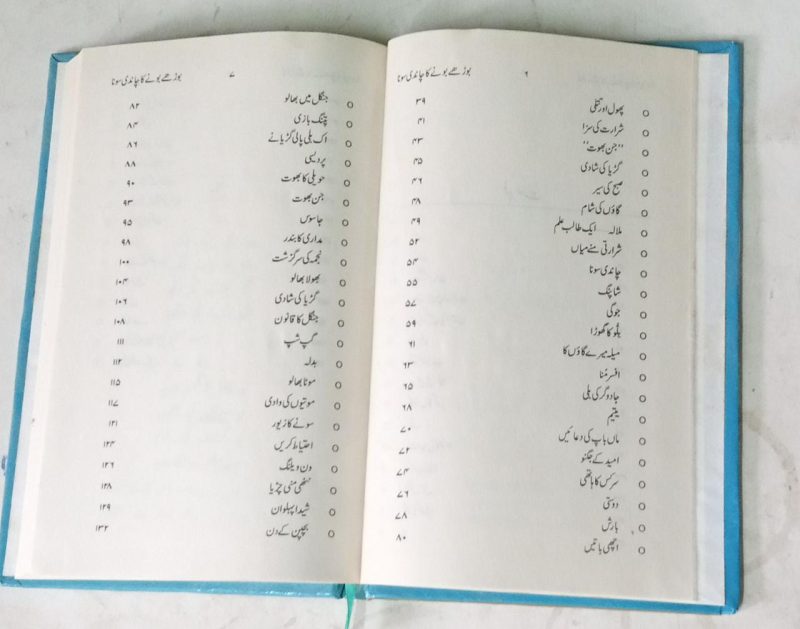 ۶ بوڑھے بونے کا چاندی سونا
○ پھول اور تتلی ۳۹
○ شرارت کی سزا ۴۱
○ ”جن بھوت“ ۴۳
○ گڑیا کی شادی ۴۵
○ صبح کی سیر ۴۶
○ گاؤں کی شام ۴۸
○ ملالہ ایک طالب علم ۴۹
○ شرارتی منے میاں ۵۲
○ چاندی سونا ۵۴
○ شاپنگ ۵۵
○ جوگی ۵۷
○ بلّو کا گھوڑا ۵۹
○ میلہ میرے گاؤں کا ۶۱
○ افسر مُنا ۶۳
○ جادوگر کی بلی ۶۵
○ یتیم ۶۸
○ ماں باپ کی دعائیں ۷۰
○ امید کے جگنو ۷۲
○ سرکس کا ہاتھی ۷۴
○ دوستی ۷۶
○ بارش ۷۸
○ اچھی باتیں ۸۰
۷ بوڑھے بونے کا چاندی سونا
○ جنگل میں بھالو ۸۲
○ پتنگ بازی ۸۴
○ اک بلی پالی گڑیا نے ۸۶
○ پردیسی ۸۸
○ حویلی کا بھوت ۹۰
○ جن بھوت ۹۳
○ جاسوس ۹۵
○ مداری کا بندر ۹۸
○ نجمہ کی سرگزشت ۱۰۰
○ بھولا بھالو ۱۰۴
○ گڑیا کی شادی ۱۰۶
○ جنگل کا قانون ۱۰۸
○ گپ شپ ۱۱۱
○ بدلہ ۱۱۲
○ موٹا بھالو ۱۱۵
○ موتیوں کی وادی ۱۱۷
○ سونے کا زیور ۱۲۱
○ احتیاط کریں ۱۲۴
○ ون ویلنگ ۱۲۶
○ ننھی منی چڑیا ۱۲۸
○ شیدا پہلوان ۱۲۹
○ بچپن کے دن ۱۳۲